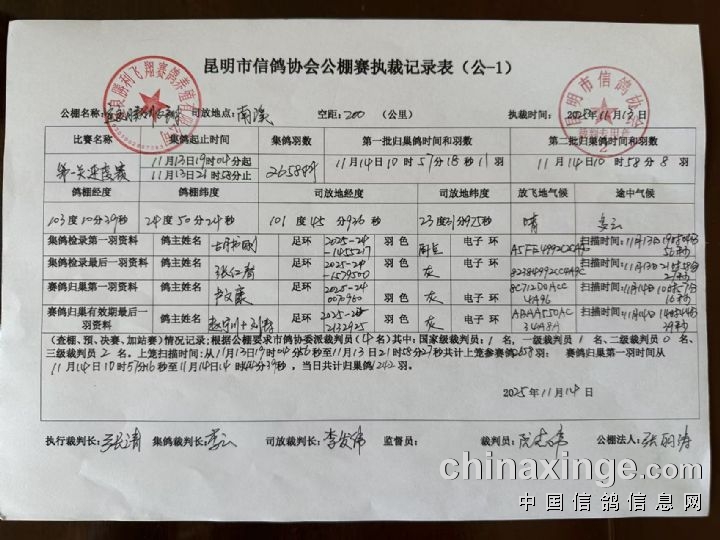 昆明市信鸽协会公棚赛执裁记录表（公-1）
公棚名称： 司放地点：南溪 空距：200（公里） 执裁时间：2025年11月13日
比赛名称 集鸽起止时间 集鸽羽数 第一批归巢鸽时间和羽数 第二批归巢鸽时间和羽数
第一关速度赛 11月13日19时04分起 2658羽 11月14日10时57分18秒11羽 11月14日10时58分8羽
11月13日21时58分止
鸽棚经度 鸽棚纬度 司放地经度 司放地纬度 放飞地气候 途中气候
103度10分39秒 24度50分24秒 101度45分926秒 23度31分925秒 晴 多云
集鸽检录第一羽资料 鸽主姓名 足环 2025-24 羽色 电子环 A5FE4992DCA9C 扫描时间：11月13日19时04分
56秒
集鸽检录最后一羽资料 鸽主姓名 足环 2025-24 羽色 灰 电子环 扫描时间：11月13日21时58分
1579500 27秒
赛鸽归巢第一羽资料 鸽主姓名 足环 2025-24 羽色 灰 电子环 8C712D0ACC 扫描时间：11月14日10时57分
070960 4A96 16秒
赛鸽归巢有效期最后一羽资料 鸽主姓名 足环 羽色 灰 电子环 ABAAF50AC 扫描时间：11月14日14时44分
2132925 34A8A 39秒
（查棚、预、决赛、加站赛）情况记录：根据公棚要求市鸽协委派裁判员（4名）其中：国家级裁判员：1名，一级裁判员1名，二级裁判员0名，
三级裁判员2名。上笼扫描时间：从11月13日19时04分56秒至11月13日21时58分27秒共计上笼参赛鸽2658羽； 赛鸽归巢第一羽时间从
11月14日10时57分16秒至11月14日14时44分39秒，当日共计归巢鸽1242羽。
2025年11月14日
执行裁判长： 集鸽裁判长：李云 司放裁判长：李发伟 监督员： 裁判员： 公棚法人：张丽涛
昆明市信鸽协会
裁判专用章
2
胜利飞翔赛鸽养殖有限公司
chinaxinge.com
中国信鸽信息网